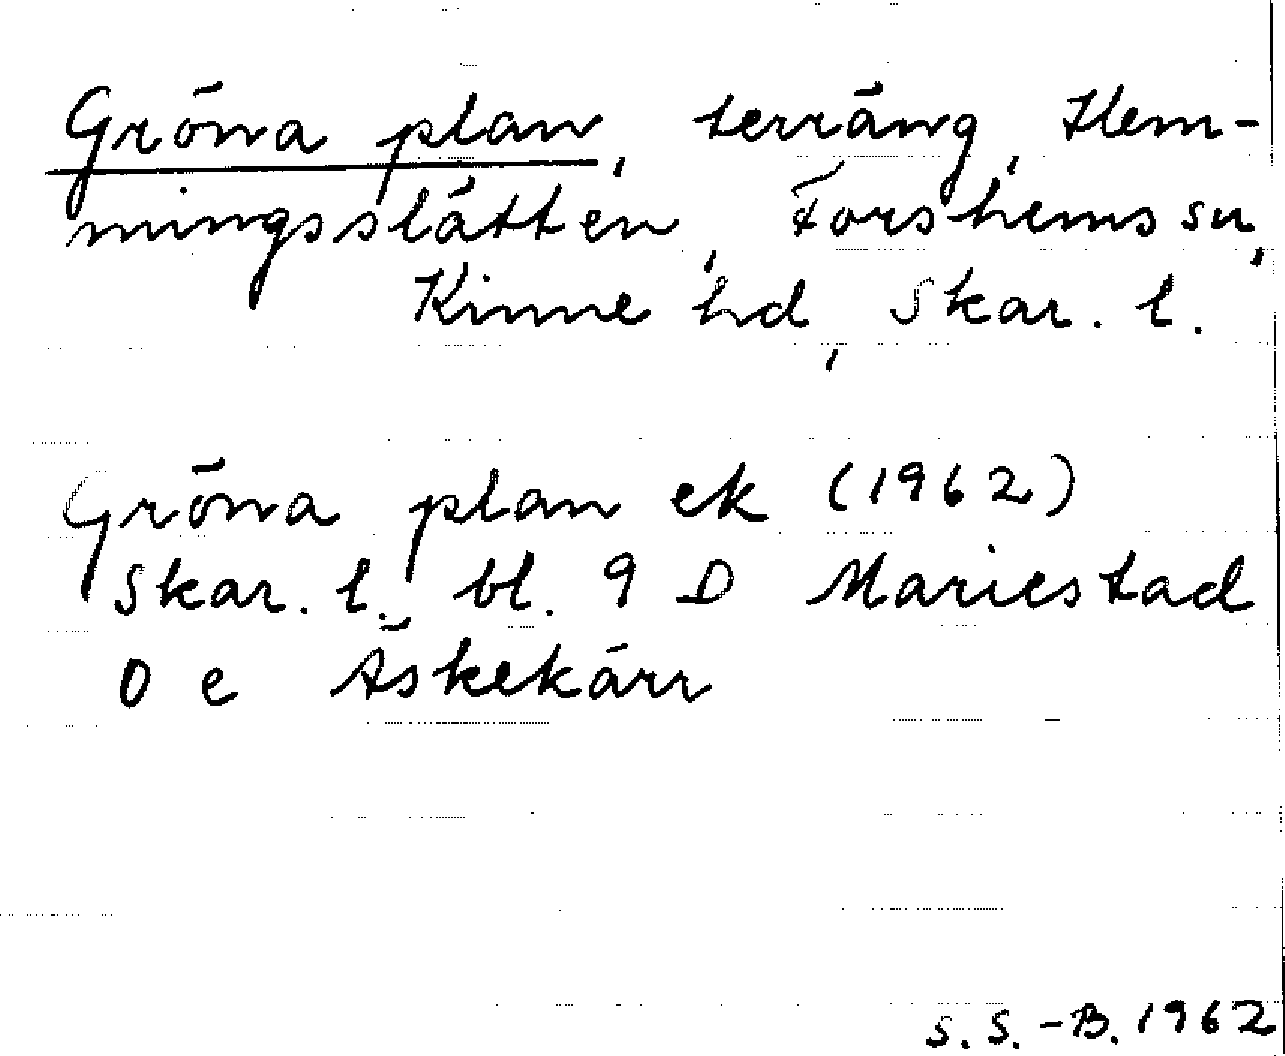 Gröna plan, terräng, Hem-
mingsslätten, Forshems sn,
Kinne hd, Skar. l.
Gröna plan ek (1962)
Skar. l. bl. 9 D Mariestad
0 e Äskekärr
S. S.-B. 1962